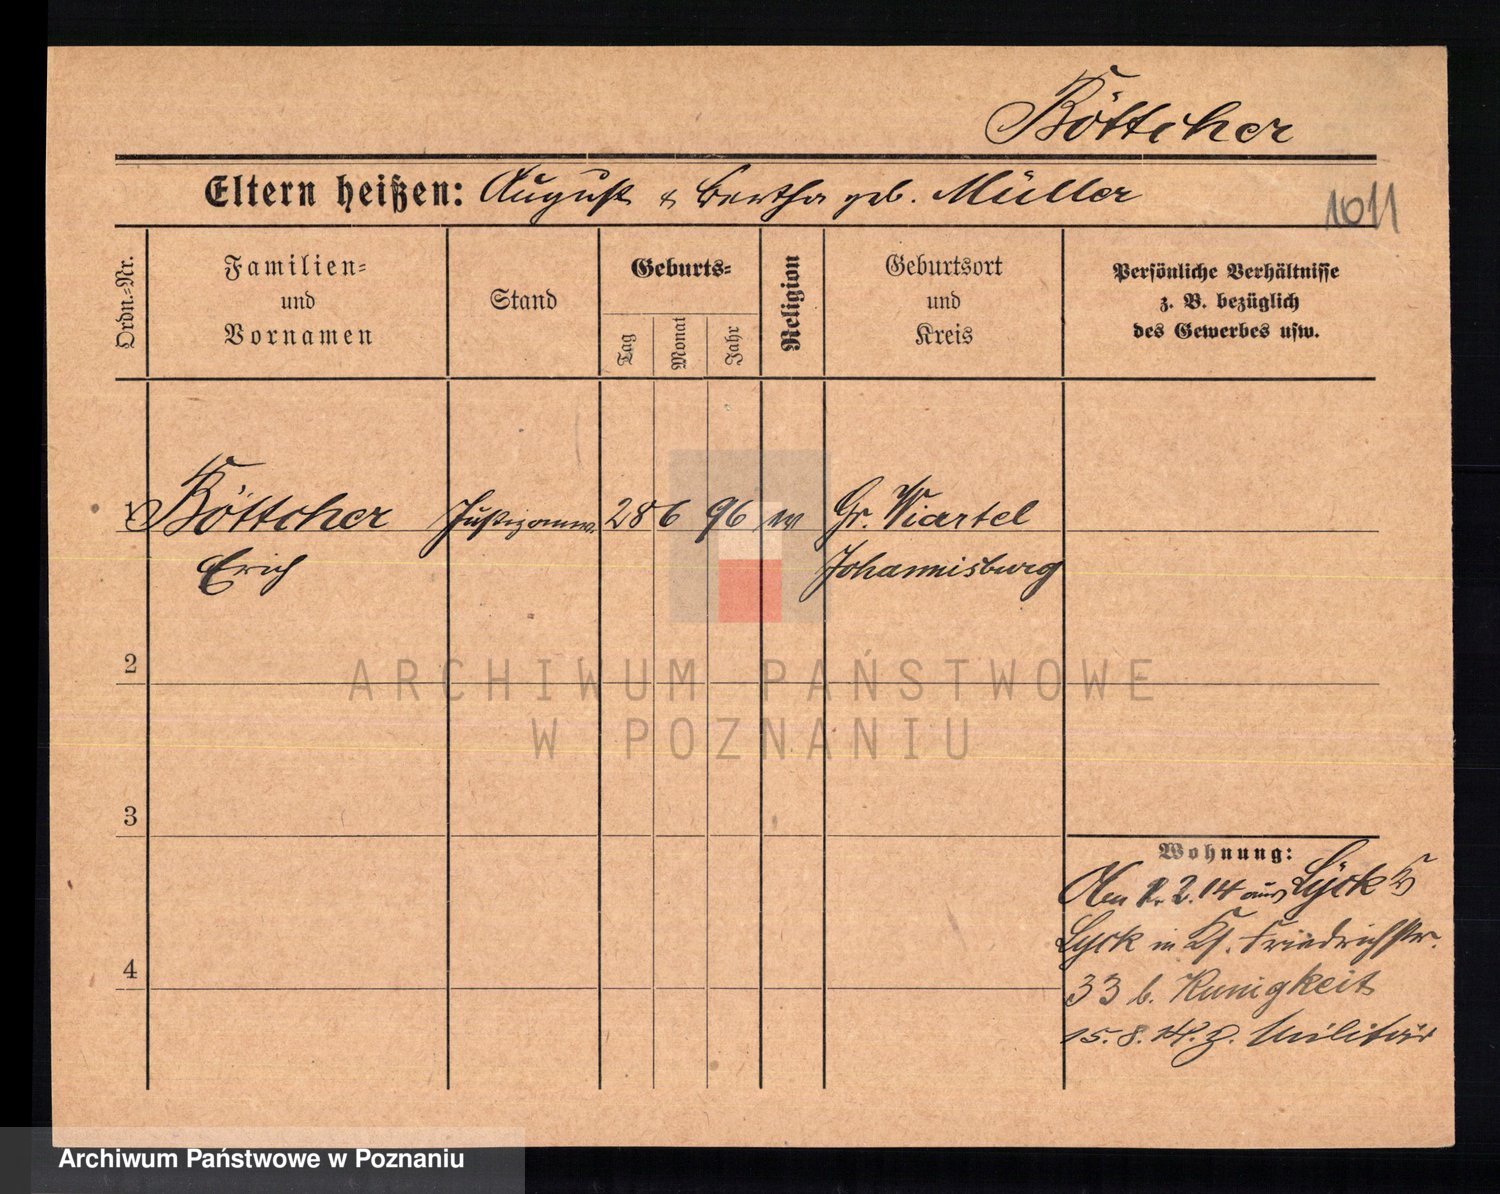 Böttcher
Eltern heißen: August & Bertha geb. Müller
1011
Ordn.-Nr.
Familien-
und
Vornamen
Stand
Geburts-
Tag
Monat
Jahr
Religion
Geburtsort
und
Kreis
Persönliche Verhältnisse
z. B. bezüglich
des Gewerbes usw.
1 Böttcher Justizanw. 28 6 96 ev Gr. Wiartel
Erich Johannisburg
2
3
4
Wohnung:
Am 1.2.14 aus Lyck K
Lyck in Friedrichstr.
33 b. Kunigkeit
15.8.14. z. Militär
ARCHIWUM PAŃSTWOWE
W POZNANIU
Archiwum Państwowe w Poznaniu